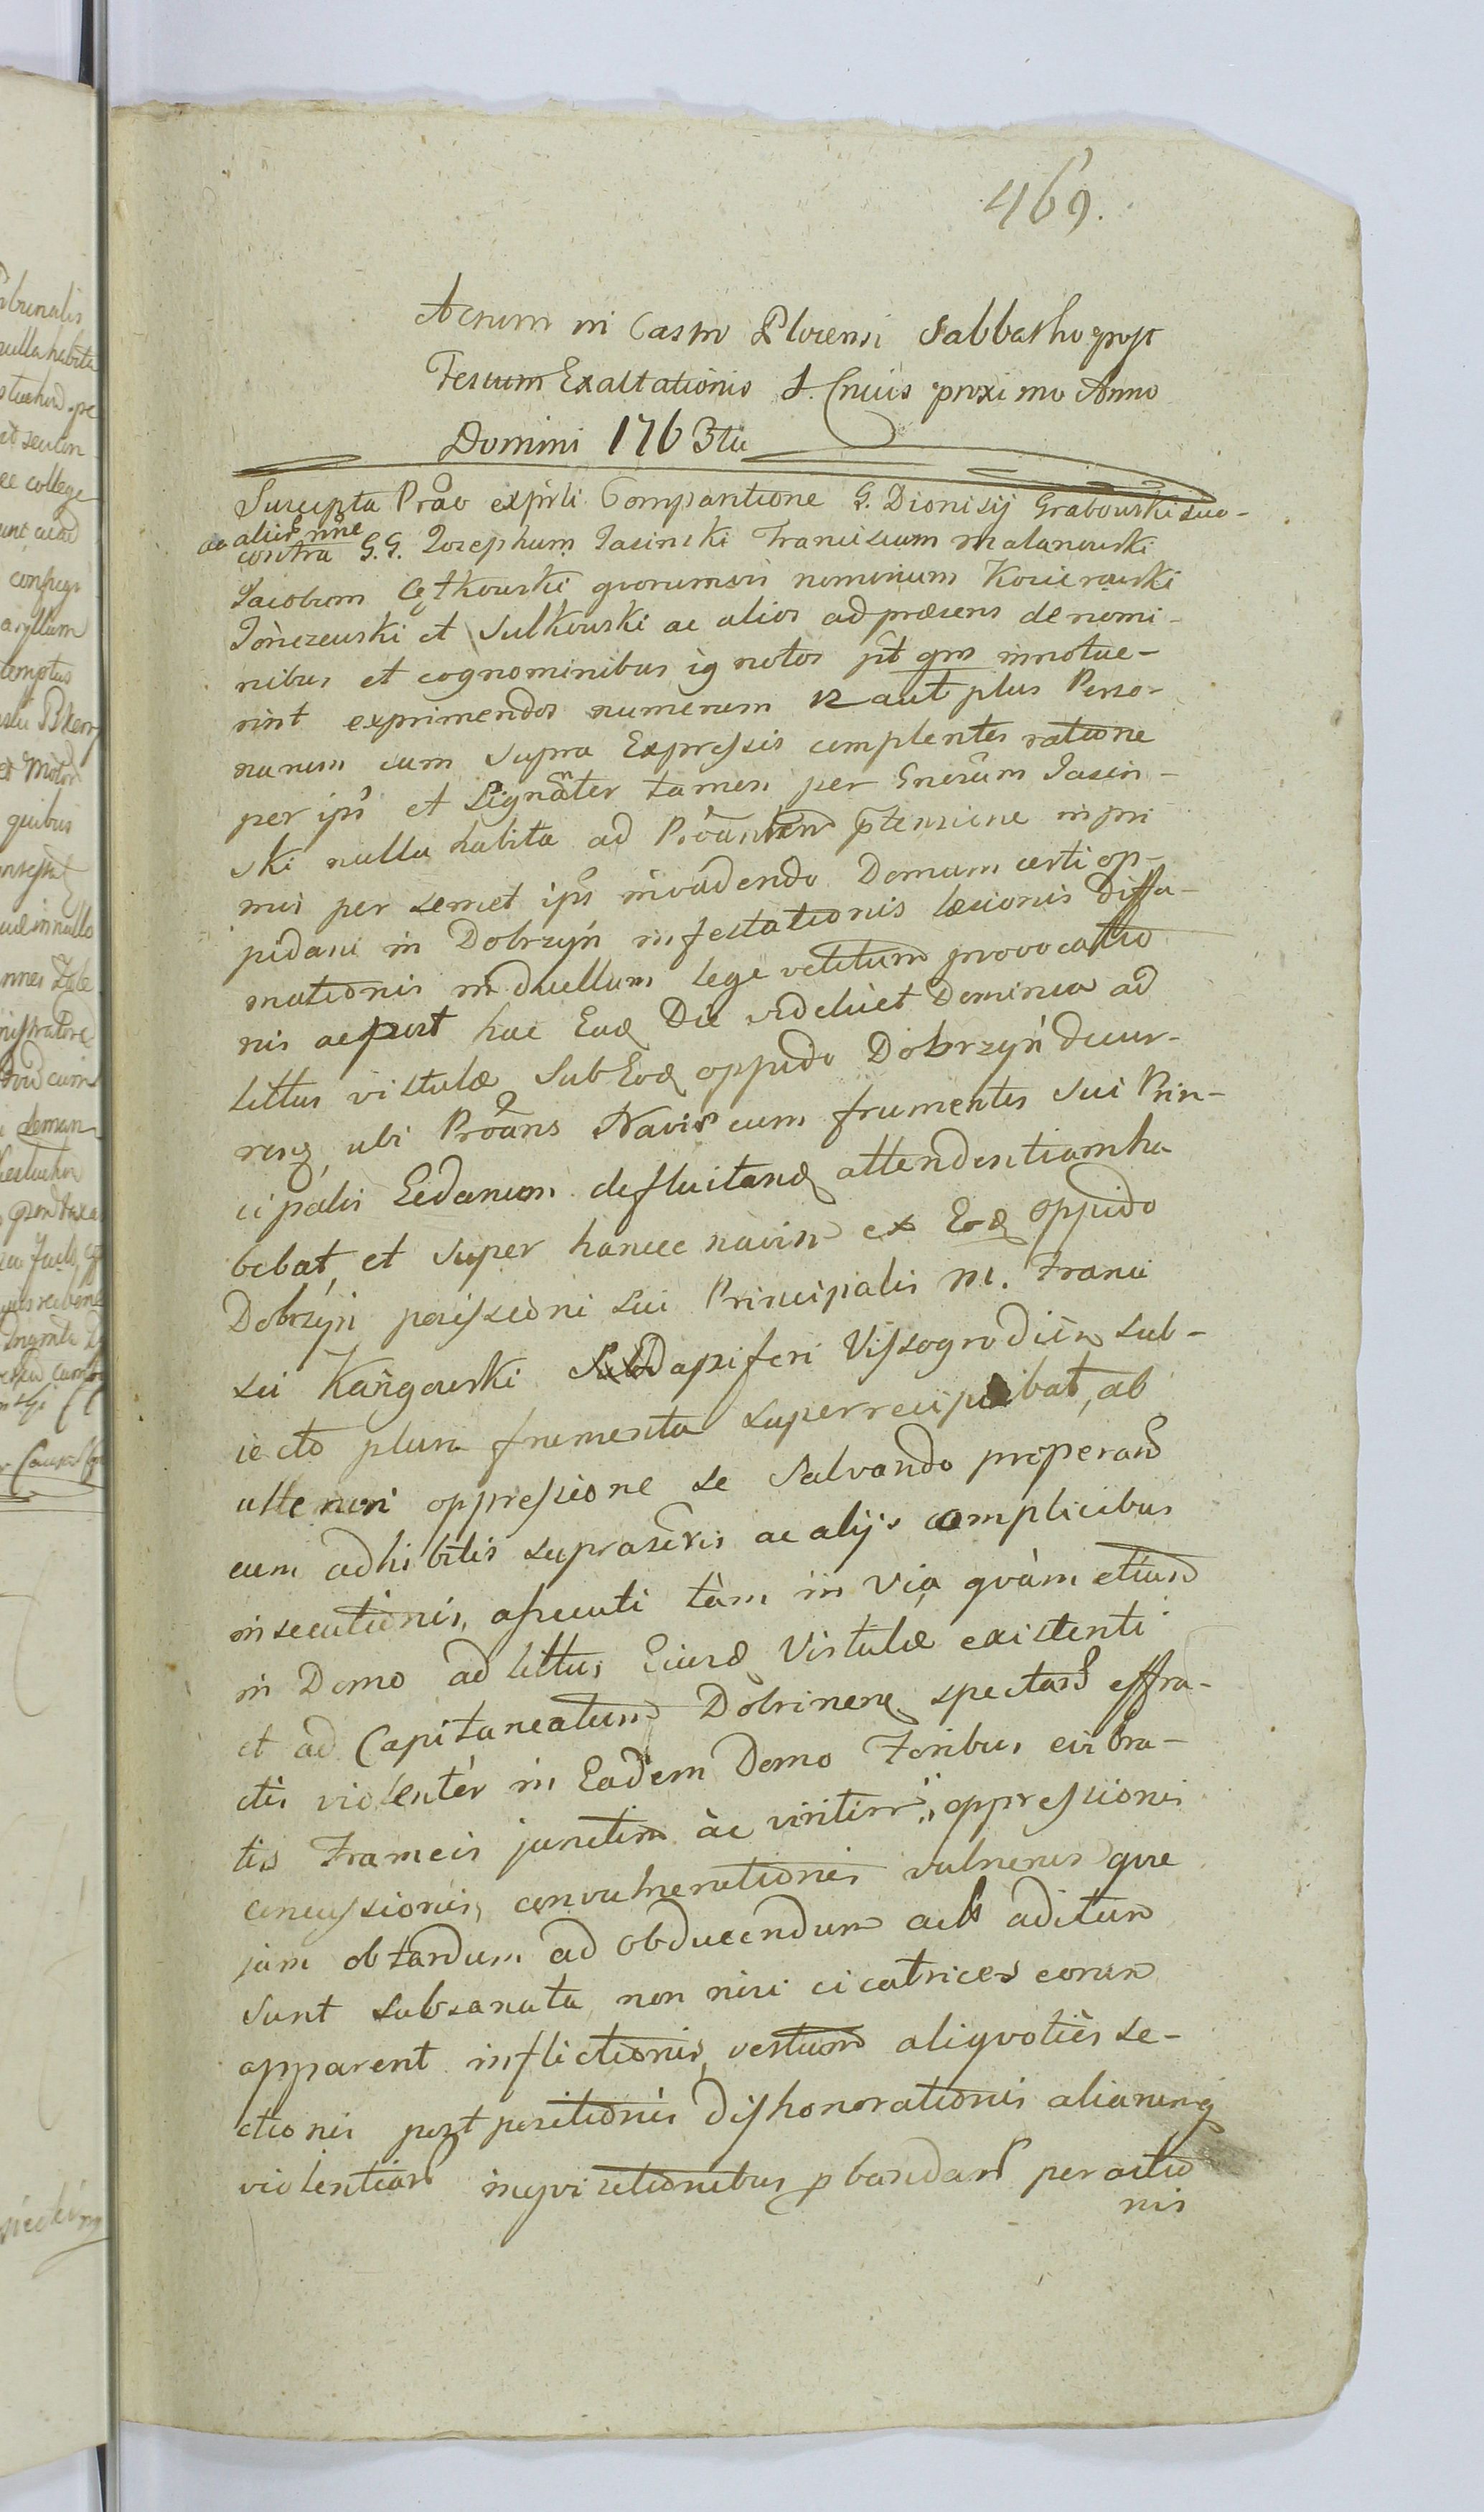 469.
Actum in Castro Plocensi Sabbatho post
Festum Exaltationis S. Crucis proximo Anno
Domini 1763tio
Suscepta Prãõ exp̃rli Comparitione G. Dionisij Grabowski suo-
ac alior̃ nñe
contra G.G. Josephum Jasinski Franciscum Malanowski
Jacobum Cętkowski quorumvis nominum Kosierowski
Jończewski et Sulkowski ac alios ad præsens de nomi-
nibus et cognominibus ignotos p̃t q̃m innotue-
rint exprimendos numerum 12 aut plus Perso-
narum cum supra Expressis complentes ratione
per ip̃s et Signãter tamen per Gnerũm Jasin-
ski nulla habita ad Prõantem p̃tensione inpri
mis per semet ip̃s invadendo Domum certi op-
pidani in Dobrzyń infestationis læsionis diffa-
mationis in duellum lege vetitum provocatio
nis ac post hac Eadẽ Die videlicet Dominica ad
littus vistulæ sub Eodẽ oppido Dobrzyń decur-
renq̃ ubi Prõans Navis cum frumentis sui Prin-
cipalis Gedanum defluitandẽ attendentiam ha
bebat, et super hancce navim ex Eodẽ oppido
Dobrzyń possessioni sui Principalis M. Franci
sci Kangowski Subdapiferi Vissogrodien̄ sub-
iecto plura frumenta superrecipiebat, ab
ulteriori oppressione se salvando properand̃
cum adhibitis suprascr̃tis ac alijs complicibus
insecutionis, assecuti tàm in via quàm etiam
in Domo ad littus Eiusdẽ Vistulæ existenti
et ad Capitaneatum Dobrinens̃ spectan̄ effra-
ctis violentèr in Eadem Domo Foribus evibra-
tis Frameis junctim àc viritim oppressionis
concussionis, convulnerationis vulnerum quæ
jam ob tardum ad obducendum aditum
sunt subsanata non nisi cicatrices eorum
apparent inflictionis, vestium aliquotiès se-
ctionis postpositionis dishonorationis aliarumq̃
violentiar̃ inquisitionibus p̃bandar̃ peractio
nis